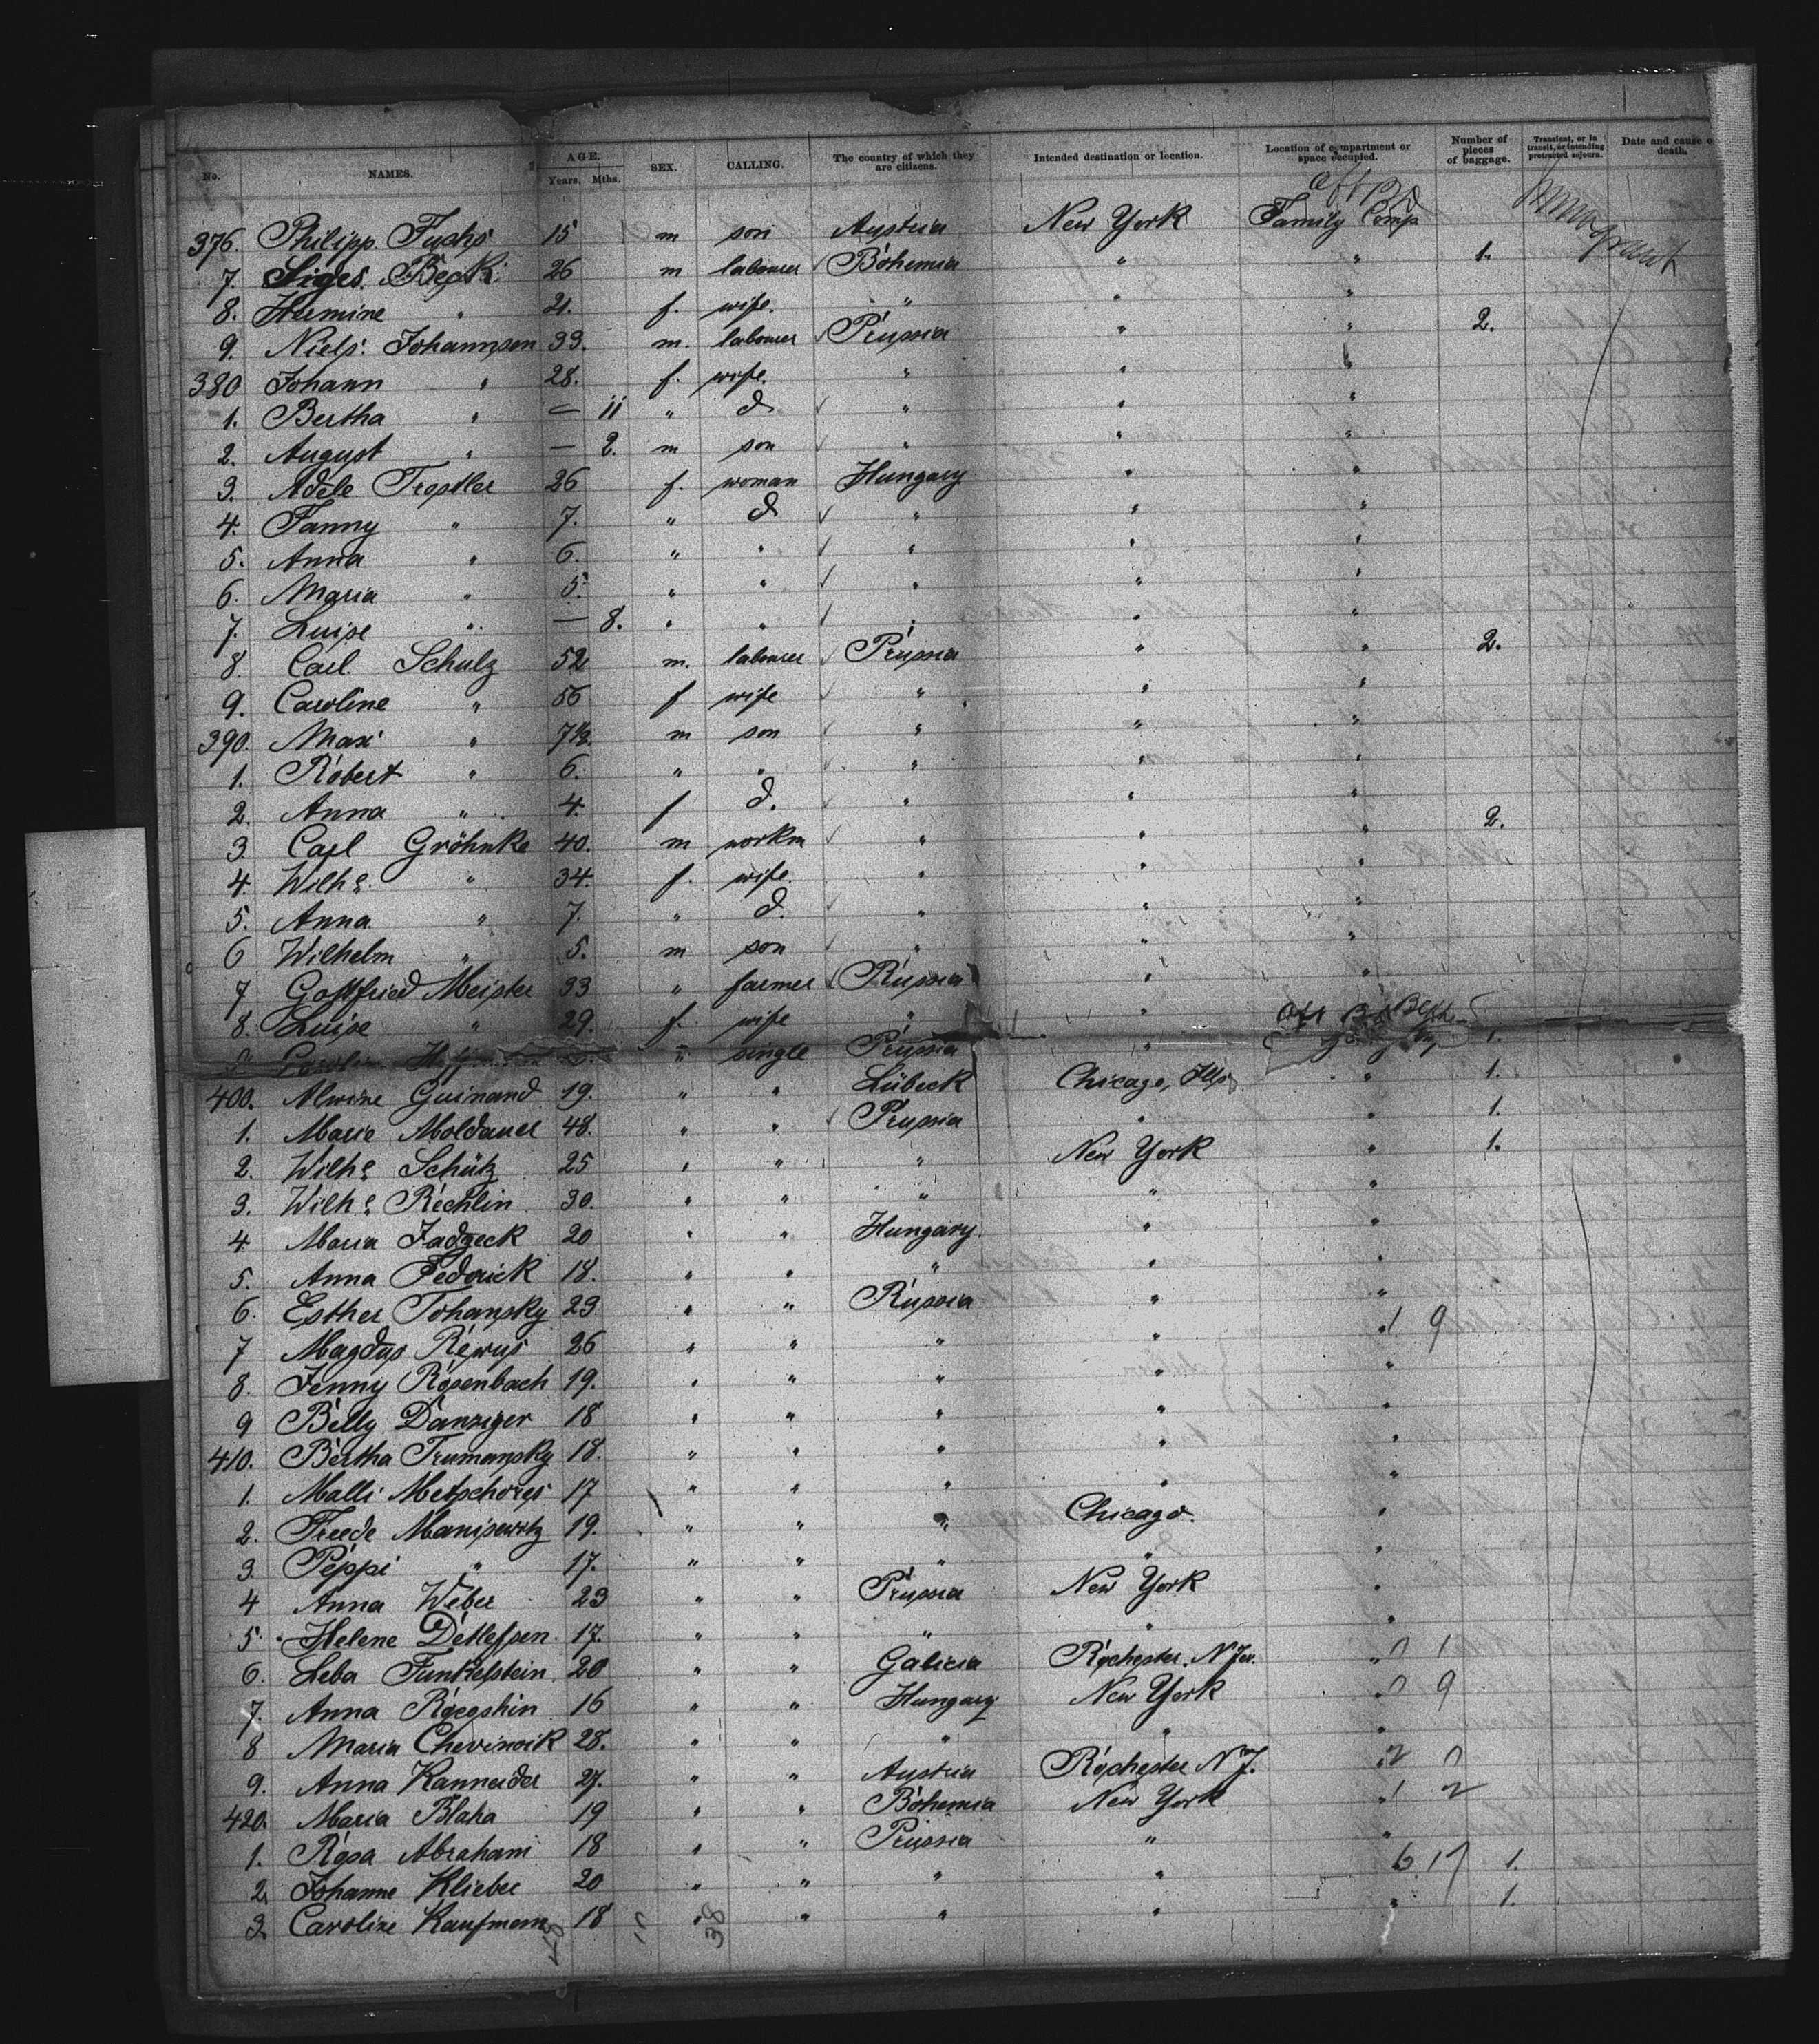 No. NAMES. AGE. Years, Mths. SEX. CALLING. The country of which they are citizens. Intended destination or location. Location of compartment or space occupied. Number of pieces of baggage. Transient, or in transit, or intending protracted sojourn. Date and cause o death.
376. Philipp Fuchs 15 m son Austria New York Family Comp.
7. Siges. Beck 26 m labourer Bohemia " " 1.
8. Hermine " 21. f. wife. " " "
9. Niels Johannsen 33. m. labourer Prussia " " 2.
380 Johann " 28. f. wife. " " "
1. Bertha " — 11 " d " " "
2. August " — 2. m son " " "
3. Adele Trostler 26 f. woman Hungary " "
4. Fanny " 7. " d " " "
5. Anna " 6. " " " " "
6. Maria " 5. " " " " "
7. Luise " — 8. " " " " "
8 Carl Schulz 52 m. labourer Prussia " " 2.
9. Caroline " 56 f wife " " "
390. Max " 7½. m son " " "
1. Robert " 6. " " " " "
2. Anna " 4. f d. " " "
3. Carl Gröhnke 40. m workm " " " 2.
4. Wilhe. " 34. f. wife. " " "
5. Anna " 7. " d. " " "
6 Wilhelm " 5. m son " " "
7 Gottfried Meister 33 " farmer Russia " "
8. Luise " 29. f. wife " "
" single Prussia " 1.
400. Alwine Guinand 19. " " Lübeck Chicago, Ills " 1.
1. Marie Moldauer 48. " " Prussia " " 1.
2. Wilhe Schütz 25 " " " New York " 1.
3. Wilhe Rechlin 30. " " " " "
4 Maria Jadzeck 20 " " Hungary. " "
5. Anna Fedorick 18. " " " " "
6. Esther Tohansky 23 " " Russia " "
7 Magdus Rewus 26 " " " " " 9
8. Jenny Rosenbach 19. " " " " "
9 Belly Danziger 18 " " " " "
410. Bertha Trumansky 18. " " " " "
1. Malli Metschores 17 " " " " "
2. Freede Manisewitz 19. " " " Chicago. "
3 Peppi " 17. " " " " "
4 Anna Weber 23 " " Prussia New York "
5. Helene Detlefsen 17. " " " " "
6. Leba Funkelstein 20 " " Galicia Rochester. N Jer. " 1
7. Anna Roegshin 16 " " Hungary New York " 9
8 Maria Chevinoik 28. " " " " "
9. Anna Kanneider 27. " " Austria Rochester N J. " 2
420. Maria Blaha 19 " " Bohemia New York " 1 2
1. Rosa Abraham 18 " " Prussia " "
2. Johanne Klieber 20 " " " " 6 17 1.
3. Caroline Kaufmann 18 " " " " " 1.
38